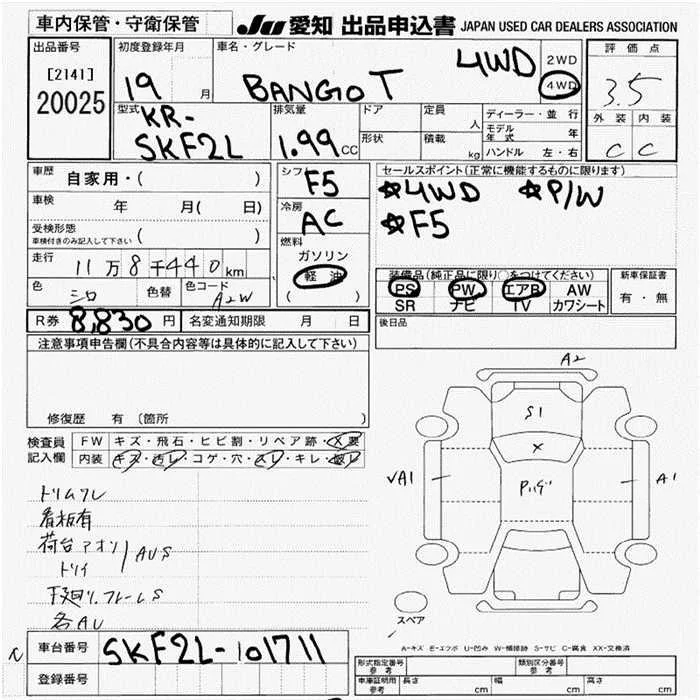 車内保管・守衛保管
JU 愛知 出品申込書 JAPAN USED CAR DEALERS ASSOCIATION
出品番号
[2141]
20025
初度登録年月
19 月
車名・グレード
BANGO T 4WD
2WD
4WD
評価点
3.5
外装 内装
C C
型式
KR-
SKF2L
排気量
1.99 CC
ドア
形状
定員 人
積載 kg
ディーラー・並行
モデル年式 年
ハンドル 左・右
車歴 自家用・( )
車検 年 月( 日)
受検形態
車検付きのみ記入して下さい ( )
走行 11万8千440km
色
シロ
色替
色コード
A2W
シフト
F5
冷房
AC
燃料
ガソリン
軽油
( )
セールスポイント(正常に機能するものに限ります)
☆4WD ☆P/W
☆F5
装備品(純正品に限り○をつけてください)
PS PW エアB AW
SR ナビ TV カワシート
新車保証書
有・無
R券 8,830円 名変通知期限 月 日
後日品
注意事項申告欄(不具合内容等は具体的に記入して下さい)
修復歴 有 〔箇所 〕
検査員
記入欄
FW キズ・飛石・ヒビ割・リペア跡・X要
内装 キズ・汚レ・コゲ・穴・スレ・キレ・破レ
トリムワレ
看板有
荷台アオリ
トリイ
AUS
下廻り、フレームS
各AU
A2
S1
X
VA1
A1
スペア
A-キズ E-エクボ U-凹み W-補修跡 S-サビ C-腐食 XX-交換済
車台番号 SKF2L-101711
登録番号
形式指定番号
参考
類別区分番号
参考
車庫証明用
参考
長さ cm
幅 cm
高さ cm